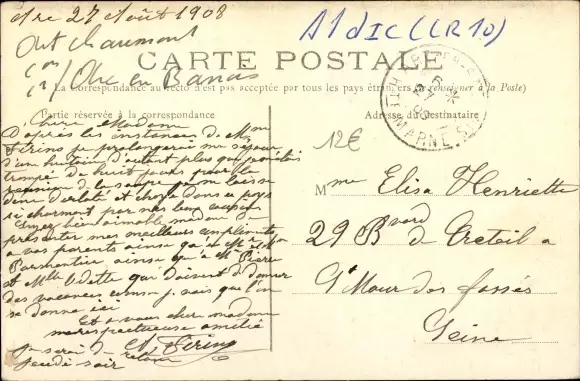 Arc 27 Août 1908
Art Chaumont
Arc en Barrois
A1dIC(LR10)
CARTE POSTALE
(La Correspondance au recto n'est pas acceptée par tous les pays étrangers. Se renseigner à la Poste)
Partie réservée à la correspondance
Adresse du destinataire
HTE MARNE
12€
Chère Madame
D'après les instances de Mme
Sirino je prolongerai mon séjour
d'une huitaine d'autant plus que
trompé de huit jours pour la
me laisse
dans ce pays
si charmant par
bien aimable madame de
présenter mes meilleurs compliments
a vos parents ainsi qu'a Mr et Mme
Parmentier, ainsi qu'a Mr Pierre
et Mlle Odette qui doivent se donner
des vacances comme je sais que l'on
se donne ici
Et a vous chère madame
ma respectueuse amitié
Je serai de retour
Jeudi soir
Mme Elisa Henriette
29 Bvard de Créteil a
St Maur des fossés
Seine